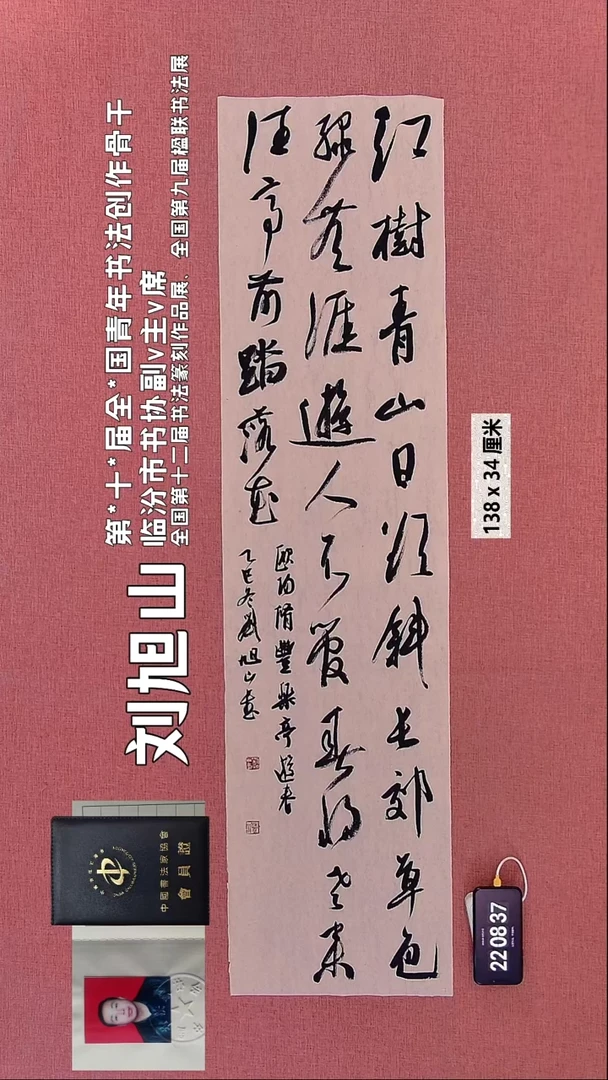 第*十*届全*国青年书法创作骨干
临汾市书协副v主v席
全国第十二届书法篆刻作品展、全国第九届楹联书法展
刘旭山
中國書法家協會
會員證
红樹青山日欲斜长郊草色
绿无涯遊人不管春将老来
往亭前踏落花
欧阳脩豐樂亭遊春
乙巳冬劉旭山書
138 x 34 厘米
22 08 37